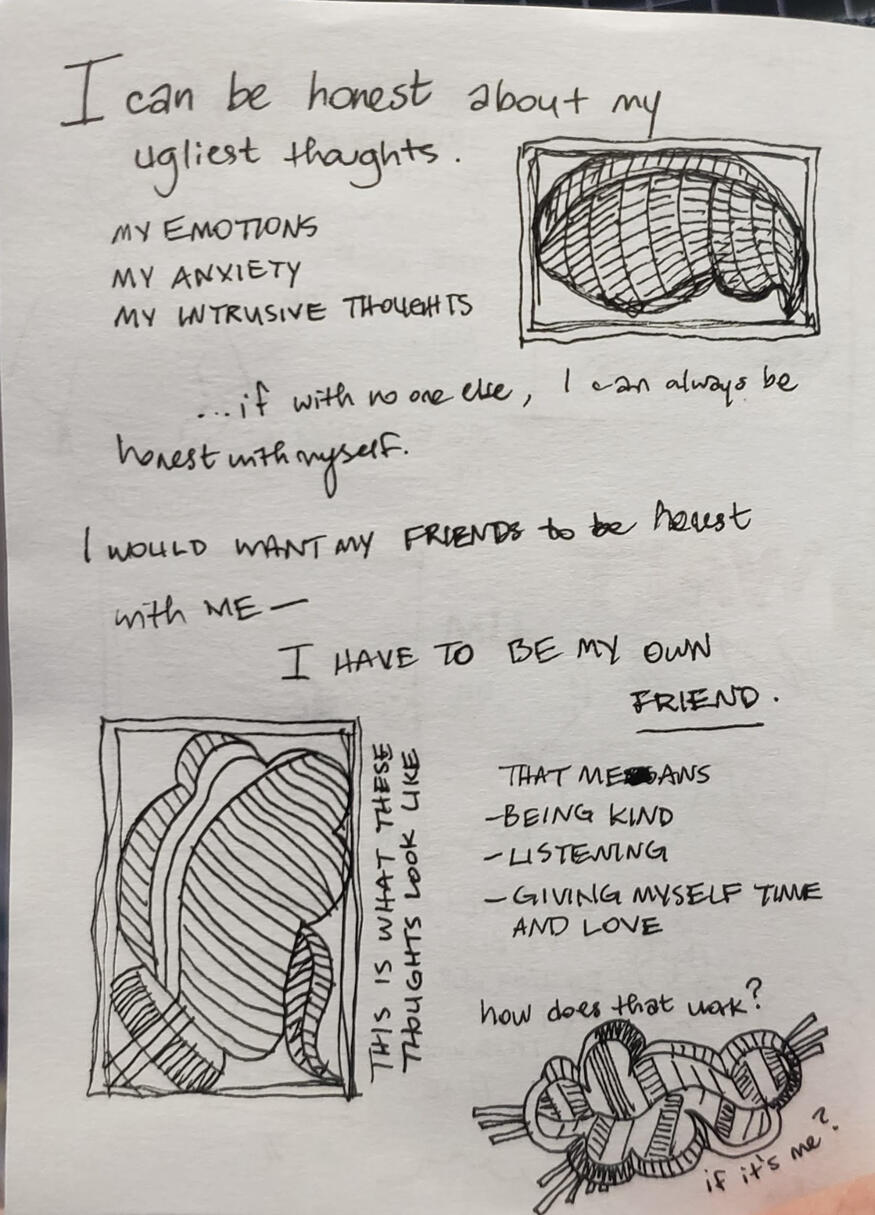 I can be honest about my
ugliest thoughts.
MY EMOTIONS
MY ANXIETY
MY INTRUSIVE THOUGHTS
...if with no one else, I can always be
honest with myself.
I WOULD WANT MY FRIENDS to be honest
with ME —
I HAVE TO BE MY OWN
FRIEND.
THIS IS WHAT THESE
THOUGHTS LOOK LIKE
THAT MEANS
- BEING KIND
- LISTENING
- GIVING MYSELF TIME
AND LOVE
how does that work?
if it's me?